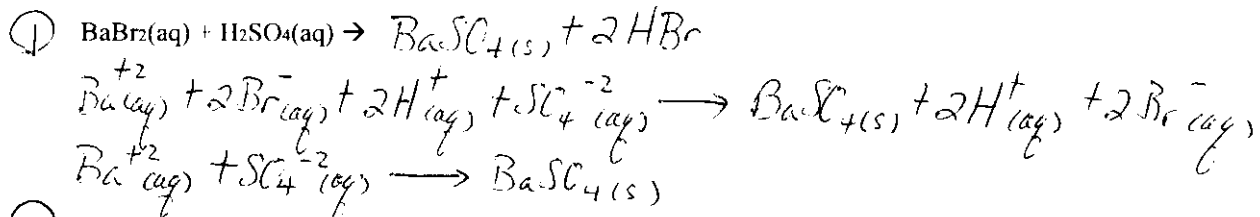 ① BaBr₂(aq) + H₂SO₄(aq) → BaSO₄(s) + 2HBr
Ba⁺²(aq) + 2Br⁻(aq) + 2H⁺(aq) + SO₄⁻²(aq) ⟶ BaSO₄(s) + 2H⁺(aq) + 2Br⁻(aq)
Ba⁺²(aq) + SO₄⁻²(aq) ⟶ BaSO₄(s)